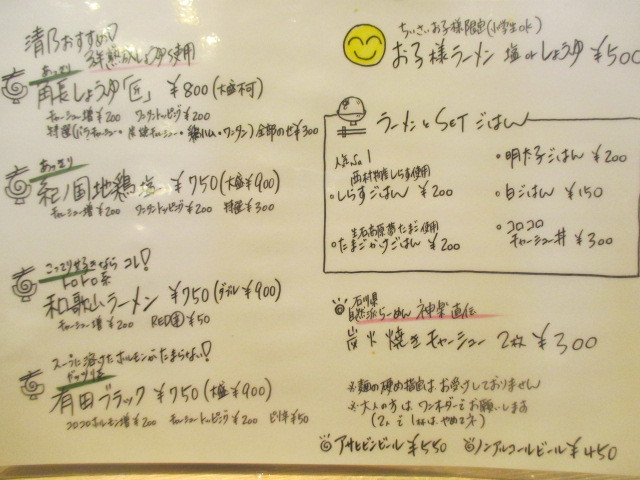 清乃おすすめ!
3年熟成しょうゆ使用
あっさり
角長しょうゆ「匠」 ¥800(大盛不可)
チャーシュー増¥200 ワンタントッピング¥200
特選(バラチャーシュー・炭焼チャーシュー・鶏ハム・ワンタン)全部のせ¥300
あっさり
紀ノ国地鶏塩 ¥750(大盛¥900)
チャーシュー増¥200 ワンタントッピング¥200 特選¥300
こってり好きならコレ!
トロトロ系
和歌山ラーメン ¥750(ダブル¥900)
チャーシュー増¥200 RED ¥50
スープに溶けたホルモンがたまらない!
ガッツリ系
有田ブラック ¥750(大盛¥900)
コロコロホルモン増¥200 チャーシュートッピング¥200 ピリ辛¥50
ちいさいお子様限定(小学生ok)
お子様ラーメン 塩orしょうゆ ¥500
ラーメンとSETごはん
人気No1
西村物産しらす使用
・しらすごはん ¥200
・明太子ごはん ¥200
・白ごはん ¥150
生石高原葵たまご使用
・たまごかけごはん ¥200
・コロコロ
チャーシュー丼 ¥300
石川県
自然派らーめん 神楽直伝
炭火焼きチャーシュー 2枚 ¥300
※麺の硬め指定はお受けしておりません
※大人の方はワンオーダーでお願いします
(2人で1杯はやめてネ)
アサヒビンビール¥550 ノンアルコールビール¥450